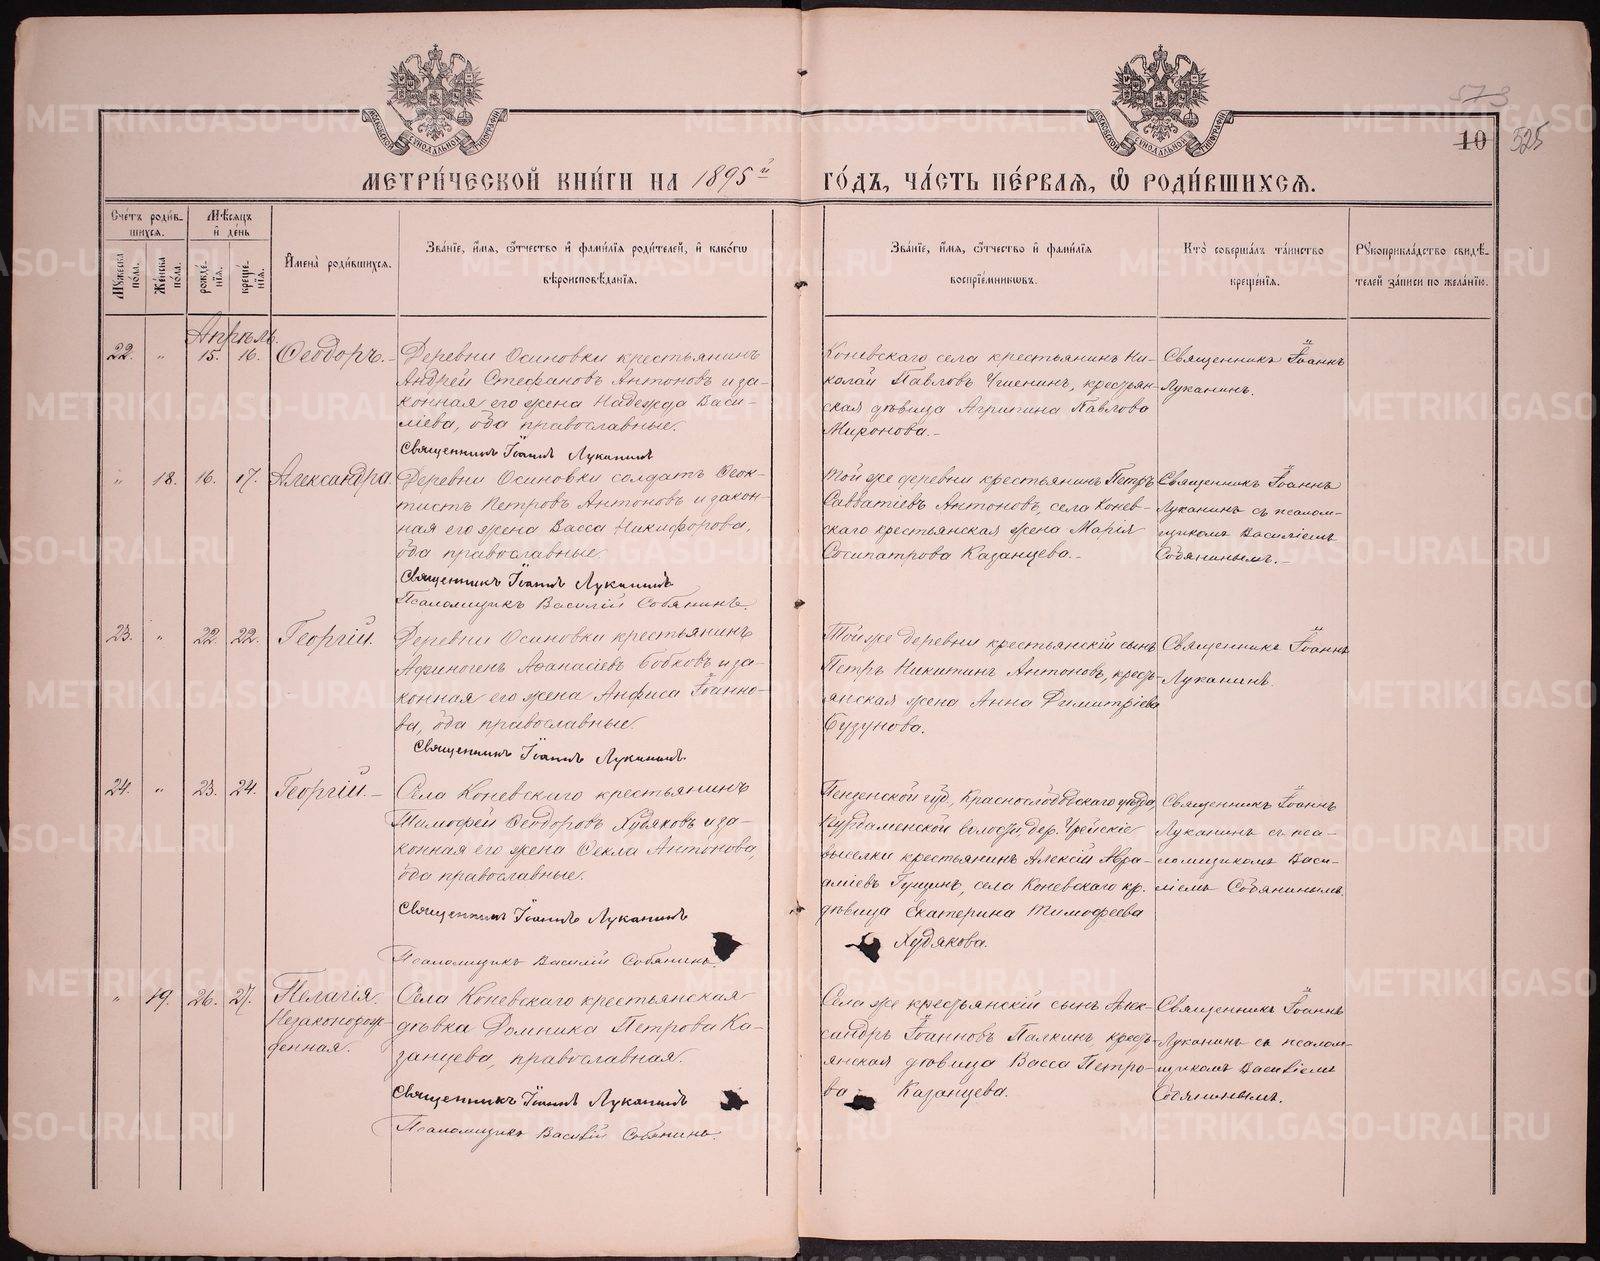 573
10 525
МЕТРИ́ЧЕСКОЙ КНИ́ГИ НА 1895й ГО́ДЪ, ЧА́СТЬ ПЕ́РВАЯ, Ѡ РОДИ́ВШИХСЯ.
Сче́тъ роди́в-
шихся.
Му́жеска по́ла.
Же́нска по́ла.
Мѣ́сяцъ
и҆ де́нь
рожде́-
нїя.
креще́-
нїя.
И҆мена̀ роди́вшихся.
Зва́нїе, и҆́мя, ѻ҆́тчество и҆ фами́лїя роди́телей, и҆ како́гѡ
вѣроисповѣ́данїя.
Зва́нїе, и҆́мя, ѻ҆́тчество и҆ фами́лїя
воспрїе́мникѡвъ.
Кто̀ соверша́лъ та́инство
креще́нїя.
Рꙋкоприкла́дство свидѣ́-
телей за́писи по жела́нїю.
Апрѣль.
22. " 15. 16. Ѳеодоръ.-
Деревни Осиновки крестьянинъ
Андрей Стефановъ Антоновъ и за-
конная его жена Надежда Васи-
ліева, оба православные.
Священникъ Іоаннъ Луканинъ
Коневскаго села крестьянинъ Ни-
колай Павловъ крестьян-
ская дѣвица Агрипина Павлова
Миронова.-
Священникъ Іоаннъ
Луканинъ.
" 18. 16. 17. Александра.
Деревни Осиновки солдатъ Ѳеок-
тистъ Петровъ Антоновъ и закон-
ная его жена Васса Никифорова,
оба православные.
Священникъ Іоаннъ Луканинъ
Псаломщикъ Василій Собянинъ.
Той же деревни крестьянинъ Петръ
Савватіевъ Антоновъ, села Конев-
скаго крестьянская жена Марія
Сосипатрова Казанцева.-
Священникъ Іоаннъ
Луканинъ съ псалом-
щикомъ Василіемъ
Собянинымъ.-
23. " 22. 22. Георгій.
Деревни Осиновки крестьянинъ
Афиногенъ Аѳанасіевъ Бобковъ и за-
конная его жена Анфиса Іоанно-
ва, оба православные.
Священникъ Іоаннъ Луканинъ
Той же деревни крестьянскій сынъ
Петръ Никитинъ Антоновъ, кресть-
янская жена Анна Димитріева
Бузунова.
Священникъ Іоаннъ
Луканинъ.
24. " 23. 24. Георгій.-
Села Коневскаго крестьянинъ
Тимофей Ѳеодоровъ Худяковъ и за-
конная его жена Ѳекла Антонова,
оба православные.
Священникъ Іоаннъ Луканинъ
Псаломщикъ Василій Собянинъ.
Пензенской губ., Краснослободскаго уѣзда,
волости, дер.
выселки крестьянинъ Алексій Авра-
аміевъ Гущинъ, села Коневскаго кр.
дѣвица Екатерина Тимофеева
Худякова.
Священникъ Іоаннъ
Луканинъ съ пса-
ломщикомъ Васи-
ліемъ Собянинымъ.
" 19. 26. 27. Пелагія.
Незаконорож-
денная.
Села Коневскаго крестьянская
дѣвка Домника Петрова Ка-
занцева, православная.
Священникъ Іоаннъ Луканинъ
Псаломщикъ Василій Собянинъ.
Села же крестьянскій сынъ Алек-
сандръ Іоанновъ Палкинъ кресть-
янская дѣвица Васса Петро-
ва Казанцева.
Священникъ Іоаннъ
Луканинъ съ псалом-
щикомъ Василіемъ
Собянинымъ.